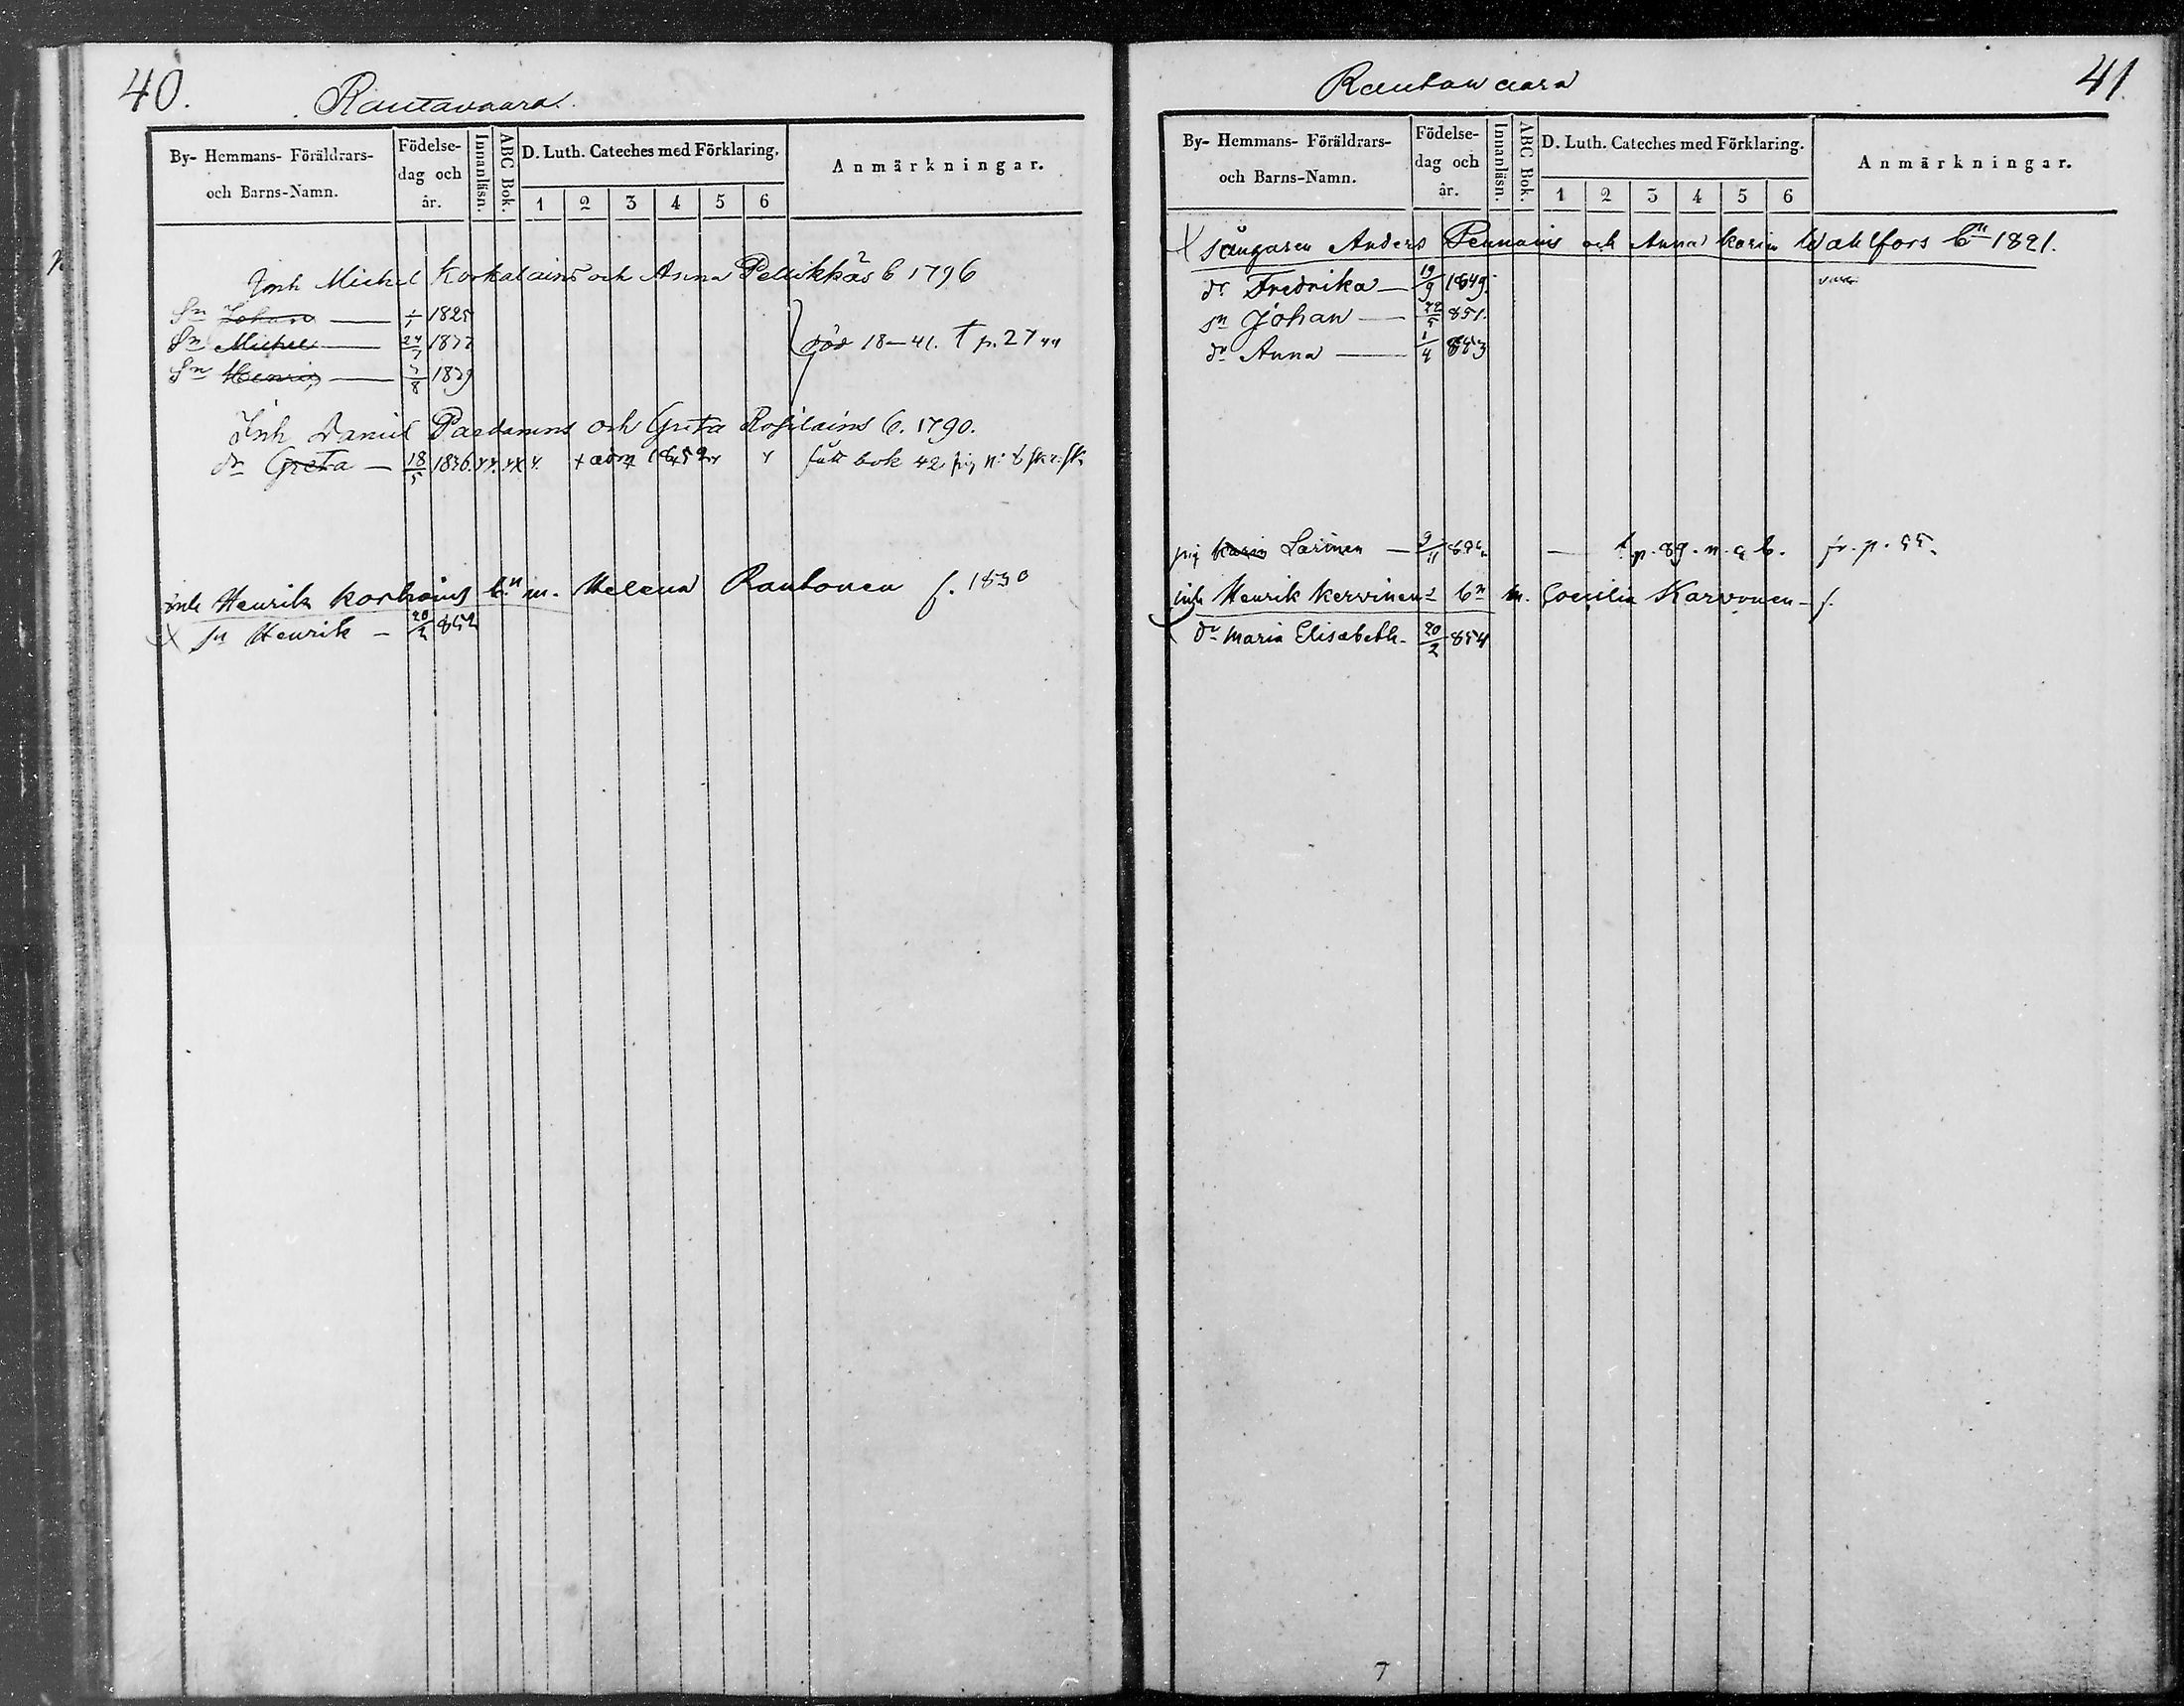 40.
Rautavaara.
By- Hemmans- Föräldrars- och Barns-Namn.
Födelse- dag och år.
Innanläsn.
ABC Bok.
D. Luth. Cateches med Förklaring.
1 2 3 4 5 6
Anmärkningar.
Inh Michel Korkalains och Anna b 1796
Sn Johan — 1825
Sn Michel — 24/7
Sn Henric — 8
död 18—41. † p. 27
Inh Daniel och Greta b. 1790.
dr Greta — 18/5 1836. adm 1852 fått bok 42
inh Henrik Korhoins bn m. Helena Rautonen f. 1830
sn Henrik — 20/2 852
41
Rautawaara
By- Hemmans- Föräldrars- och Barns-Namn.
Födelse- dag och år.
Innanläsn.
ABC Bok.
D. Luth. Cateches med Förklaring.
1 2 3 4 5 6
Anmärkningar.
Sångaren Anders Pennains och Anna Karin Wahlfors bn 1821.
dr Fredrika — 19/9 1849.
sn Johan — 22/5 851.
dr Anna — 1/4 853
pig Karin Larinen — 9/11 — p. 89. n. a b. fr. p. 55.
inh Henrik Kervinen bn m. Coecilia Karvonen — f.
dr Maria Elisabeth. 20/2 854
7